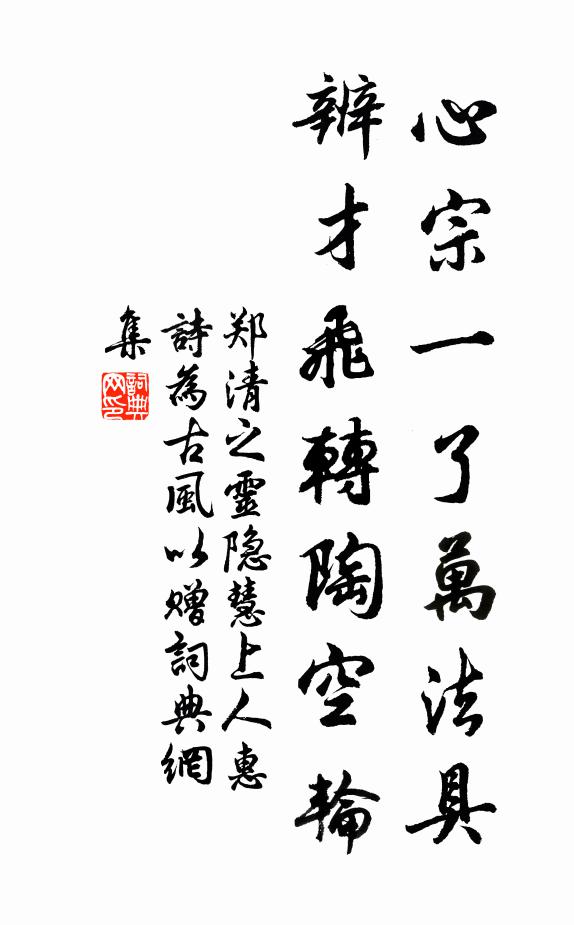 心宗一了萬法具
辨才飛轉陶空輪
郑清之靈隐慧上人惠
詩為古風以赠詞典網
集
詞典
网印